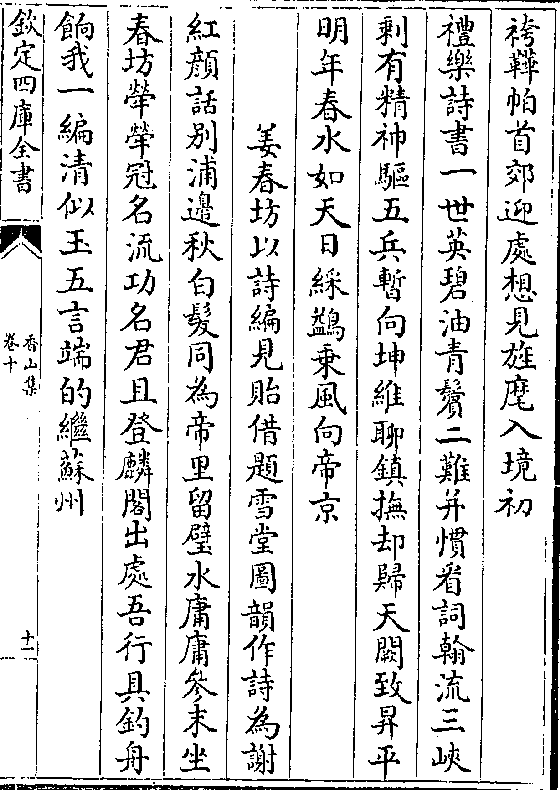 袴鞾帕首郊迎處想見旌麾入境初
禮樂詩書一世英碧油青鬢二難并慣看詞翰流三峽
剩有精神驅五兵暫向坤維聊鎮撫却歸天闕致昇平
明年春水如天日綵鷁乗風向帝京
姜春坊以詩編見貽借題雪堂圖韻作詩為謝
紅顔話别浦邉秋白髮同為帝里留璧水庸庸參末坐
春坊犖犖冠名流功名君且登麟閣出處吾行具釣舟
餉我一編清似玉五言端的繼蘇州
欽定四庫全書
香山集
卷十
十一